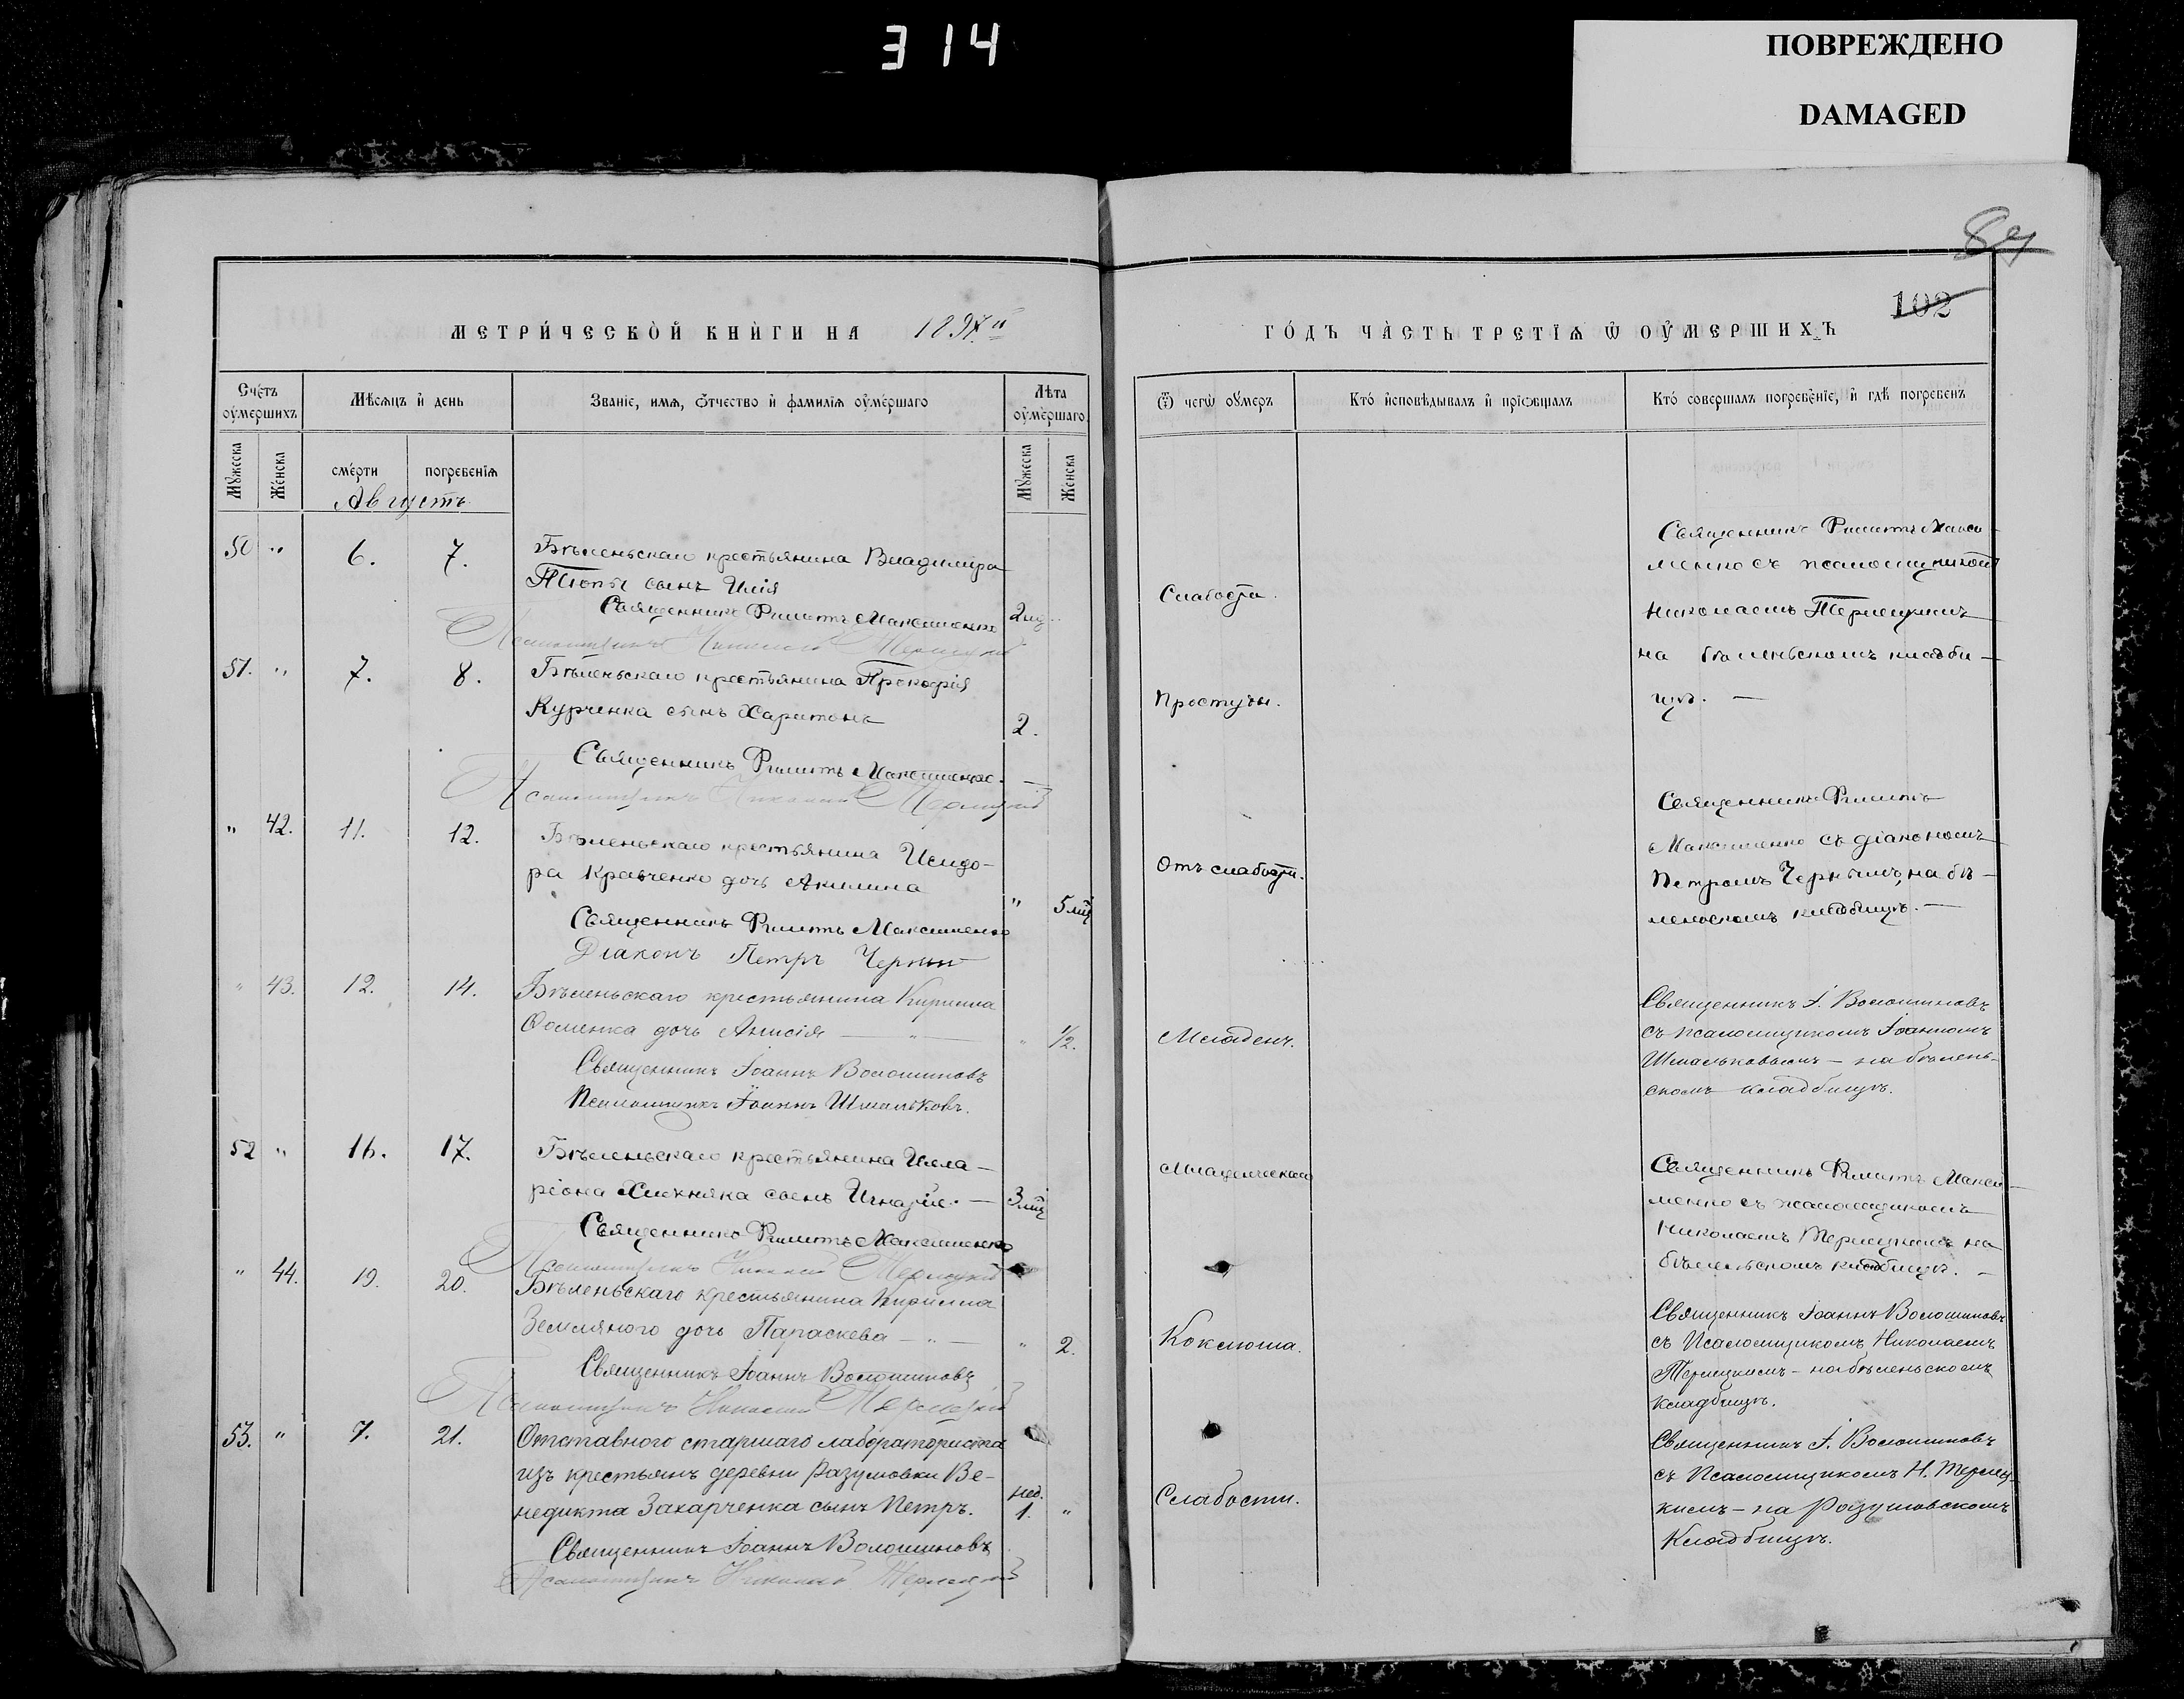 314
ПОВРЕЖДЕНО
DAMAGED
102
МЕТРИ́ЧЕСКО́Й КНИ́ГИ НА 1897й
ГО́ДЪ ЧА́СТЬ ТРЕ́ТІѦ Ѿ ОУ҆МЕРШИХЪ
Счетъ оу҆мершихъ
Мѣсѧцъ и҆ день
Званіе, имѧ, ѿчество и҆ фамиліѧ оу҆мершаго
Лѣта оу҆мершаго
Ѿ чегѡ оу҆меръ
Кто̀ и҆сповѣдывалъ и҆ пріѡбщалъ
Кто̀ совершалъ погребеніе, и҆ гдѣ погребенъ
Мꙋжеска
Женска
смерти
погребеніѧ
Мꙋжеска
Женска
Августъ
50 " 6. 7.
Бѣленьскаго крестьянина Владиміра
сынъ Илія
Священникъ Филиппъ Максименко
2 нд.
Псаломщикъ Николай Терлецкій
Слабости.
Священникъ Филиппъ Макси-
менко съ псаломщикомъ
Николаемъ Терлецкимъ
на бѣленьскомъ кладби-
щѣ. —
51. " 7. 8.
Бѣленьскаго крестьянина Прокофія
Курченка сынъ Харитонъ
2.
Священникъ Филиппъ Максименко. —
Псаломщикъ Николай Терлецкій
Простуды.
" 42. 11. 12.
Бѣленьскаго крестьянина Исидо-
ра Кравченко дочь Акилина
" 5 мц
Священникъ Филиппъ Максименко
Діаконъ Петръ Черный
Отъ слабости.
Священникъ Филиппъ
Максименко съ діакономъ
Петромъ Чернымъ, на бѣ-
леньскомъ кладбищѣ. —
" 43. 12. 14.
Бѣленьскаго крестьянина Кирилла
Фоменка дочь Анисія — " —
" 1/2.
Священникъ Іоаннъ Волошиновъ
Псаломщикъ Іоаннъ Шмальковъ.
Младенч.
Священникъ І. Волошиновъ
съ псаломщикомъ Іоанномъ
Шмальковымъ – на бѣлень-
скомъ кладбищѣ.
52 " 16. 17.
Бѣленьскаго крестьянина Илла-
ріона Хижняка сынъ Игнатій. —
3 мц
Священникъ Филиппъ Максименко
Псаломщикъ Николай Терлецкій
Младенческой
Священникъ Филиппъ Макси-
менко съ псаломщикомъ
Николаемъ Терлецкимъ на
бѣленьскомъ кладбищѣ. —
" 44. 19. 20.
Бѣленьскаго крестьянина Кирилла
Земляного дочь Параскева — " —
" 2.
Священникъ Іоаннъ Волошиновъ
Псаломщикъ Николай Терлецкій
Коклюша.
Священникъ Іоаннъ Волошиновъ
съ Псаломщикомъ Николаемъ
Терлецкимъ – на бѣленьскомъ
кладбищѣ.
53. " 7. 21.
Отставного старшаго лабораториста
изъ крестьянъ деревни Разумовки Ве-
недикта Захарченка сынъ Петръ.
нед.
1. "
Священникъ Іоаннъ Волошиновъ
Псаломщикъ Николай Терлецкій
Слабости.
Священникъ І. Волошиновъ
съ Псаломщикомъ Н. Терлец-
кимъ – на Разумовскомъ
Кладбищѣ.